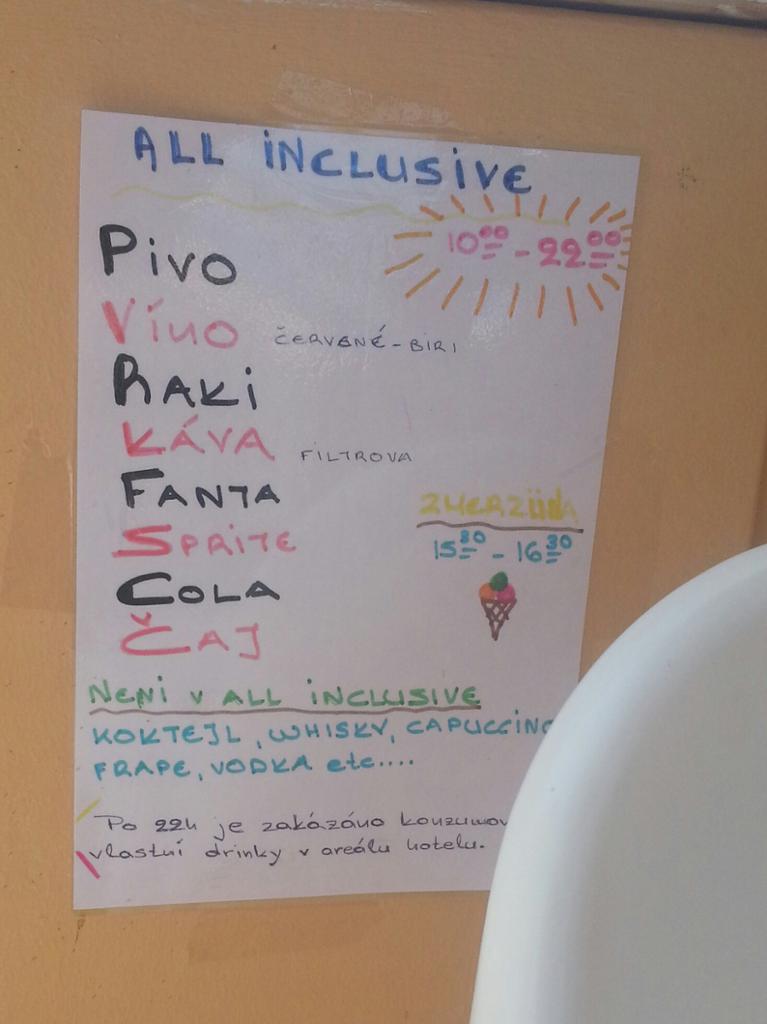 ALL iNCLUSiVE
10 00 - 22 00
Pivo
Víno ČERVENÉ - BIRI
RAKi
KÁVA FILTROVA
FANTA
SPRITE
COLA
ČAJ
ZMERZlina
15 30 - 16 30
NENi V ALL iNCLUSiVE
KOKTEJL, WHISKY, CAPUCCiNO
FRAPE, VODKA etc....
Po 22h je zakázáno
vlastní drinky v areálu hotelu.